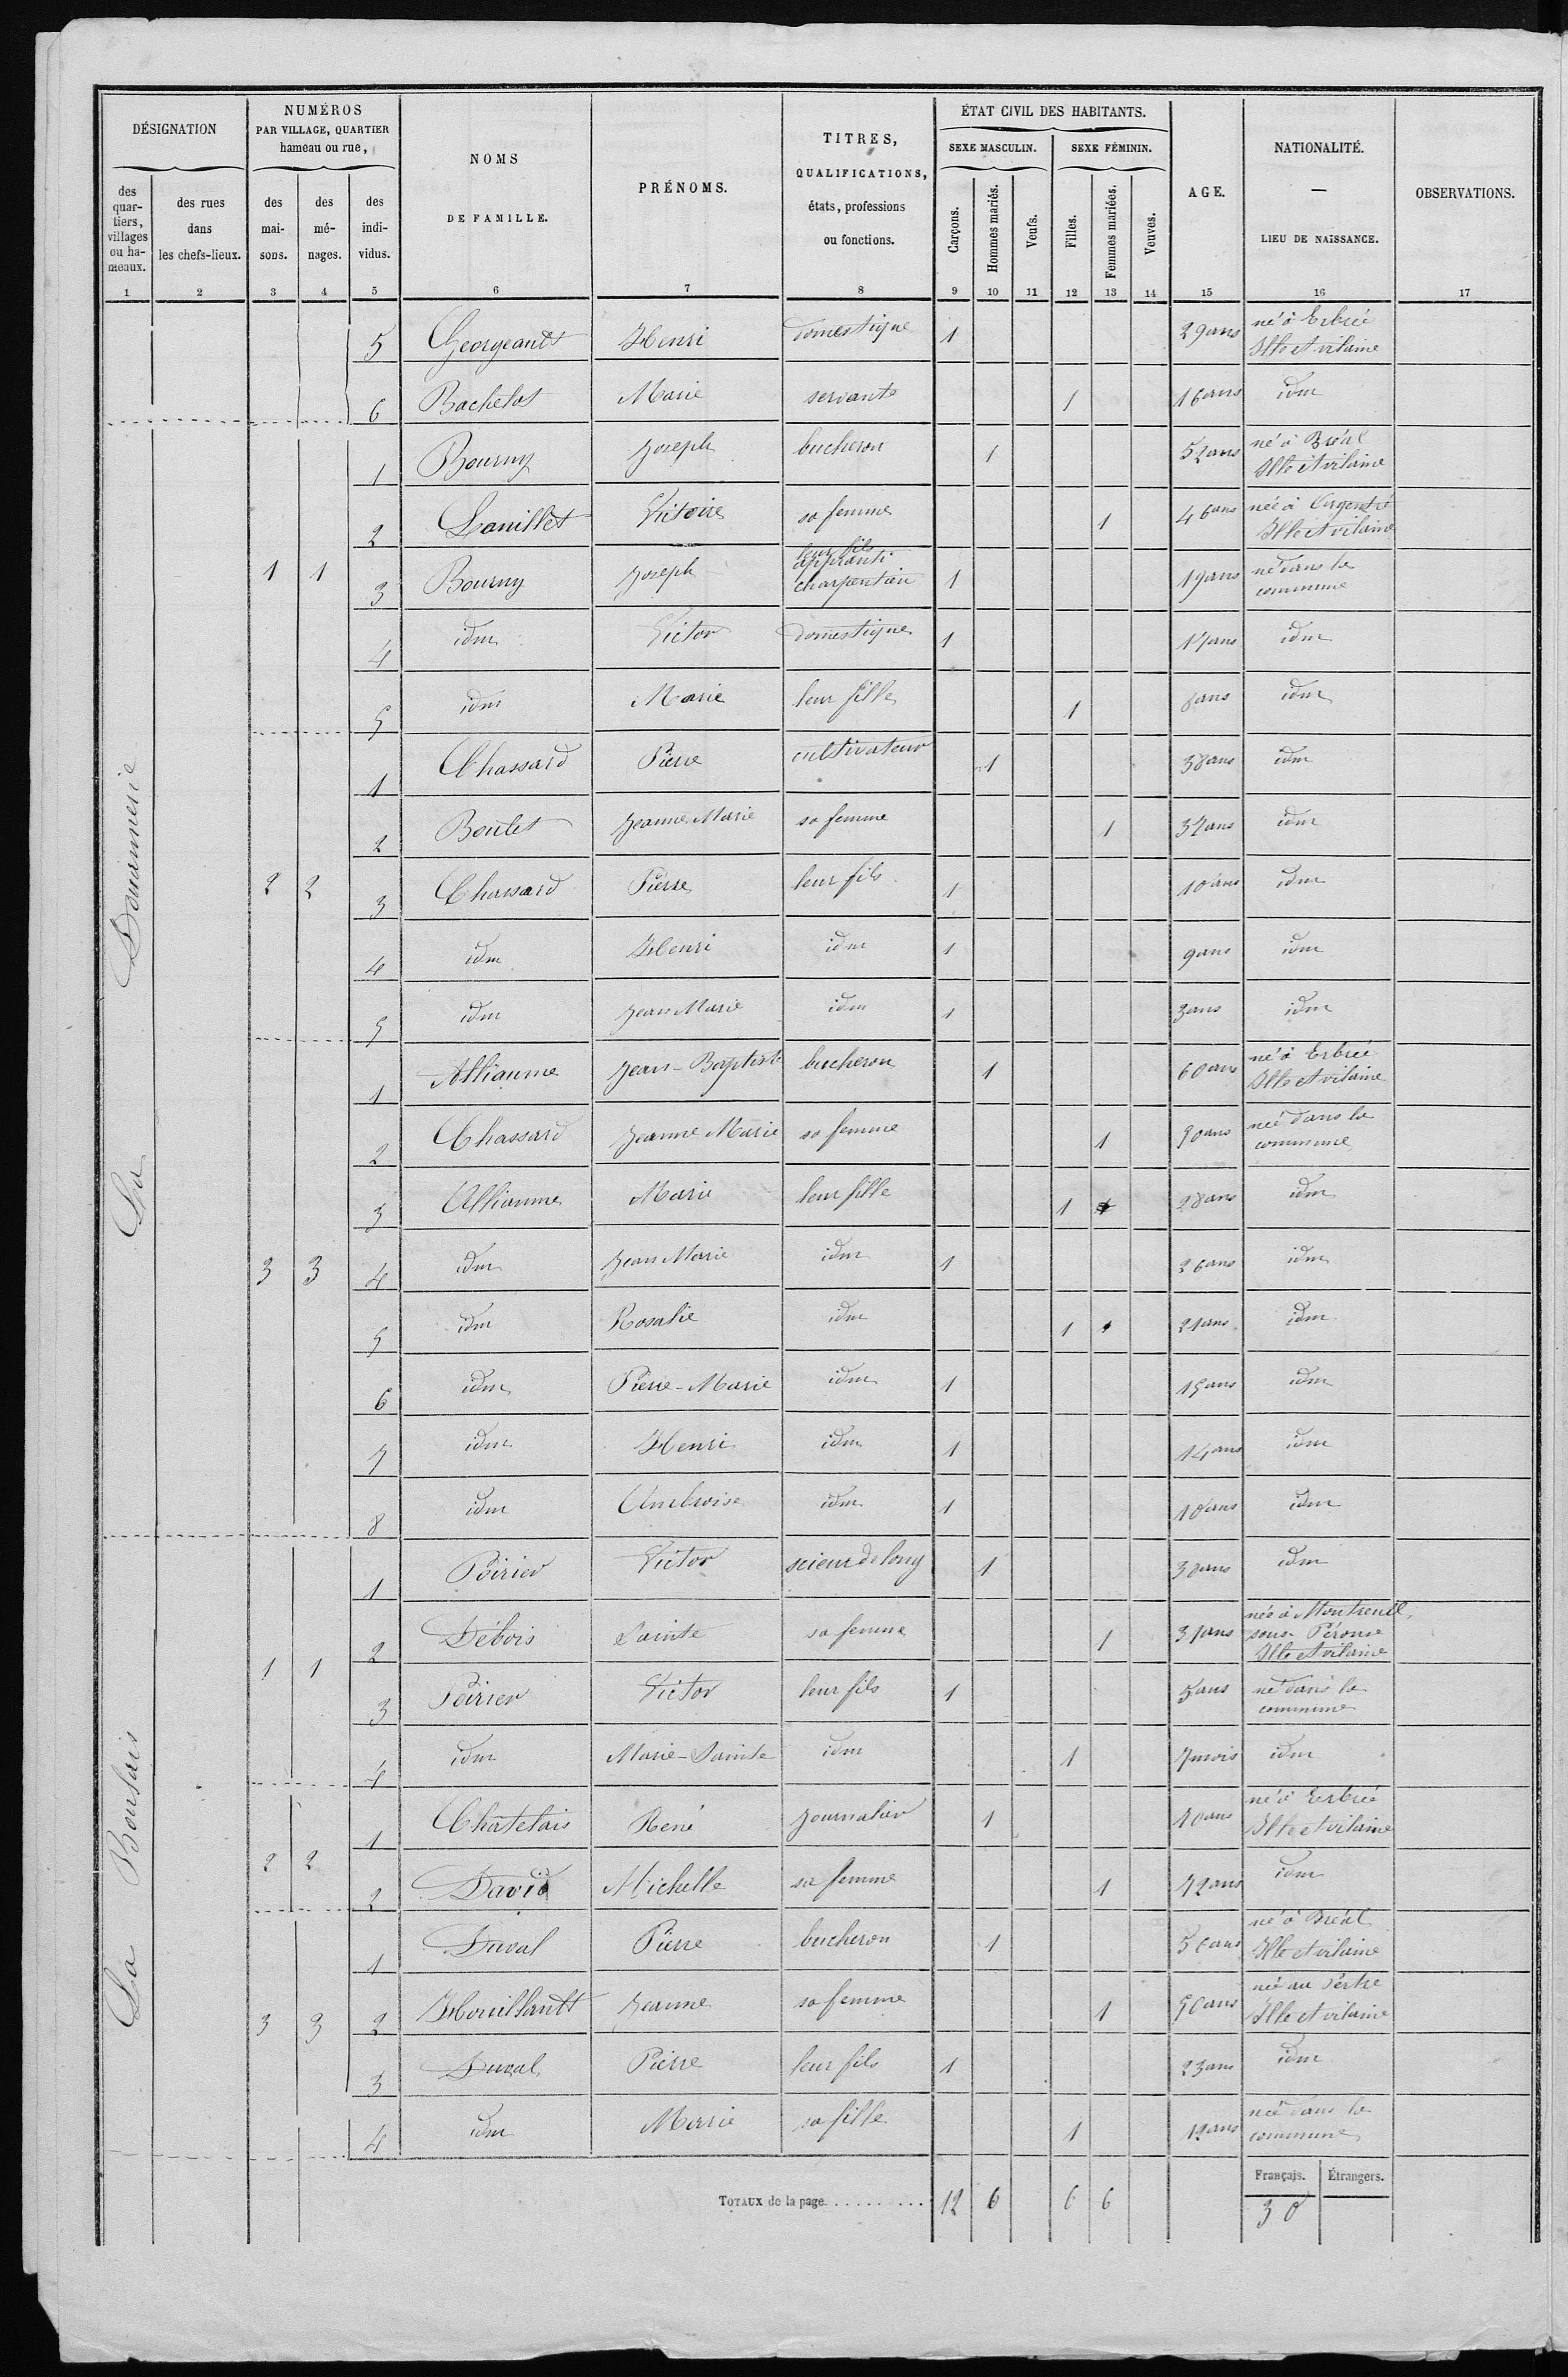 DÉSIGNATION
NUMÉROS
PAR VILLAGE, QUARTIER
hameau ou rue,
NOMS
DE FAMILLE.
PRÉNOMS.
TITRES,
QUALIFICATIONS,
états, professions
ou fonctions.
ÉTAT CIVIL DES HABITANTS.
SEXE MASCULIN.
SEXE FÉMININ.
AGE.
NATIONALITÉ.
—
LIEU DE NAISSANCE.
OBSERVATIONS.
des quar-tiers, villages ou ha-meaux.
des rues dans les chefs-lieux.
des mai-sons.
des mé-nages.
des indi-vidus.
Garçons.
Hommes mariés.
Veufs.
Filles.
Femmes mariées.
Veuves.
1 2 3 4 5 6 7 8 9 10 11 12 13 14 15 16 17
5 Georgeault Henri domestique 1 29 ans né à Erbrée Ille et vilaine
6 Bachelot Marie servante 1 16 ans idm
La Douinnerie
1 1
1 Bourny Joseph bucheron 1 52 ans né à Bréal Ille et vilaine
2 Victoire sa femme 1 46 ans née à Argentré Ille et vilaine
3 Bourny Joseph leur fils apprenti charpentier 1 19 ans né dans la commune
4 idm Victor domestique 1 17 ans idm
5 idm Marie leur fille 1 8 ans idm
2 2
1 Chassard Pierre cultivateur 1 38 ans idm
2 Boulet Jeanne Marie sa femme 1 37 ans idm
3 Chassard Pierre leur fils 1 10 ans idm
4 idm Henri idm 1 9 ans idm
5 idm Jean Marie idm 1 3 ans idm
3 3
1 Alliaume Jean-Baptiste bucheron 1 60 ans né à Erbrée Ille et vilaine
2 Chassard Jeanne Marie sa femme 1 50 ans née dans la commune
3 Alliaume Marie leur fille 1 28 ans idm
4 idm Jean Marie idm 1 26 ans idm
5 idm Rosalie idm 1 21 ans idm
6 idm Pierre-Marie idm 1 15 ans idm
7 idm Henri idm 1 14 ans idm
8 idm Ambroise idm 1 10 ans idm
La
1 1
1 Poirier Victor scieur de long 1 38 ans idm
2 Débois Sainte sa femme 1 31 ans née à Montreuil sous-Pérouse Ille et vilaine
3 Poirier Victor leur fils 1 5 ans né dans la commune
4 idm Marie-Sainte idm 1 7 mois idm
2 2
1 Châtelais René Journalier 1 70 ans né à Erbrée Ille et vilaine
2 David Michelle sa femme 1 72 ans idm
3 3
1 Duval Pierre bucheron 1 ans né à Bréal Ille et vilaine
2 Houillault Jeanne sa femme 1 50 ans née au Pertre Ille et vilaine
3 Duval Pierre leur fils 1 23 ans idm
4 idm Marie sa fille 1 12 ans née dans la commune
TOTAUX de la page. . . . . . . . . . 12 6 6 6
Français. Étrangers.
30